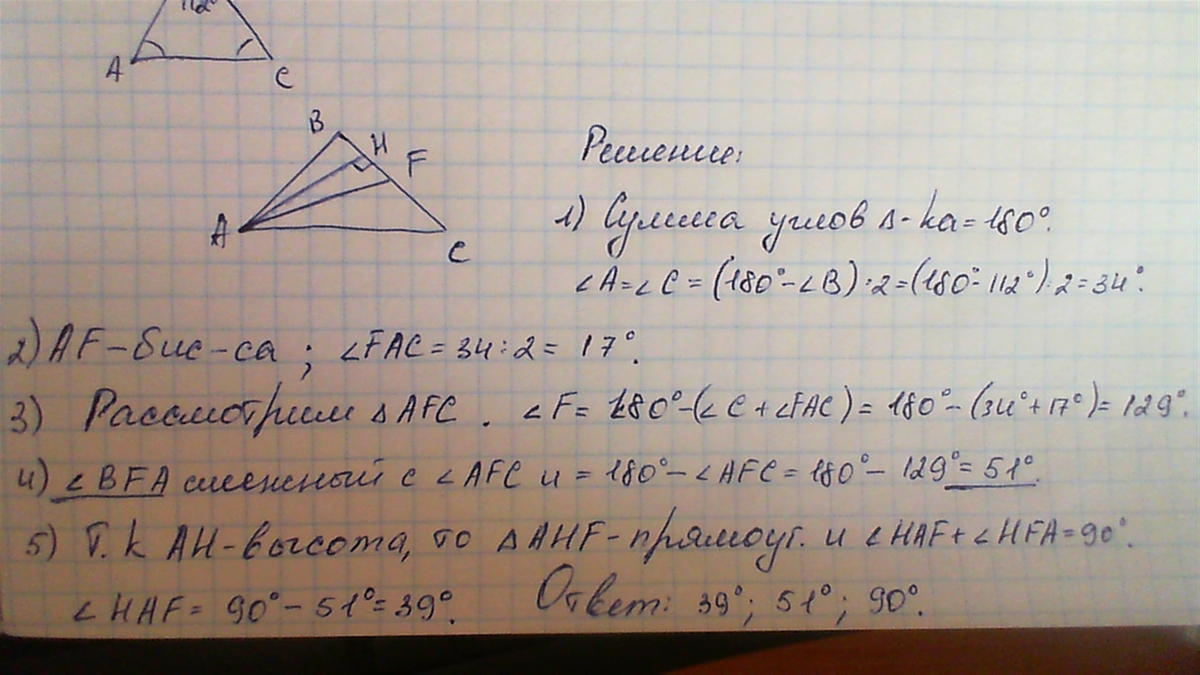 112°
A
C
B
H
F
A
C
Решение:
1) Сумма углов Δ-ка = 180°.
∠A=∠C = (180°-∠B):2=(180°-112°):2=34°.
2) AF-бис-са ; ∠FAC = 34:2 = 17°.
3) Рассмотрим ΔAFC. ∠F= 180°-(∠C+∠FAC) = 180°-(34°+17°)= 129°.
4) ∠BFA смежный с ∠AFC и = 180°-∠AFC = 180°- 129°=51°.
5) Т.к AH-высота, то ΔAHF-прямоуг. и ∠HAF+∠HFA=90°.
∠HAF= 90°- 51°=39°. Ответ: 39°; 51°; 90°.